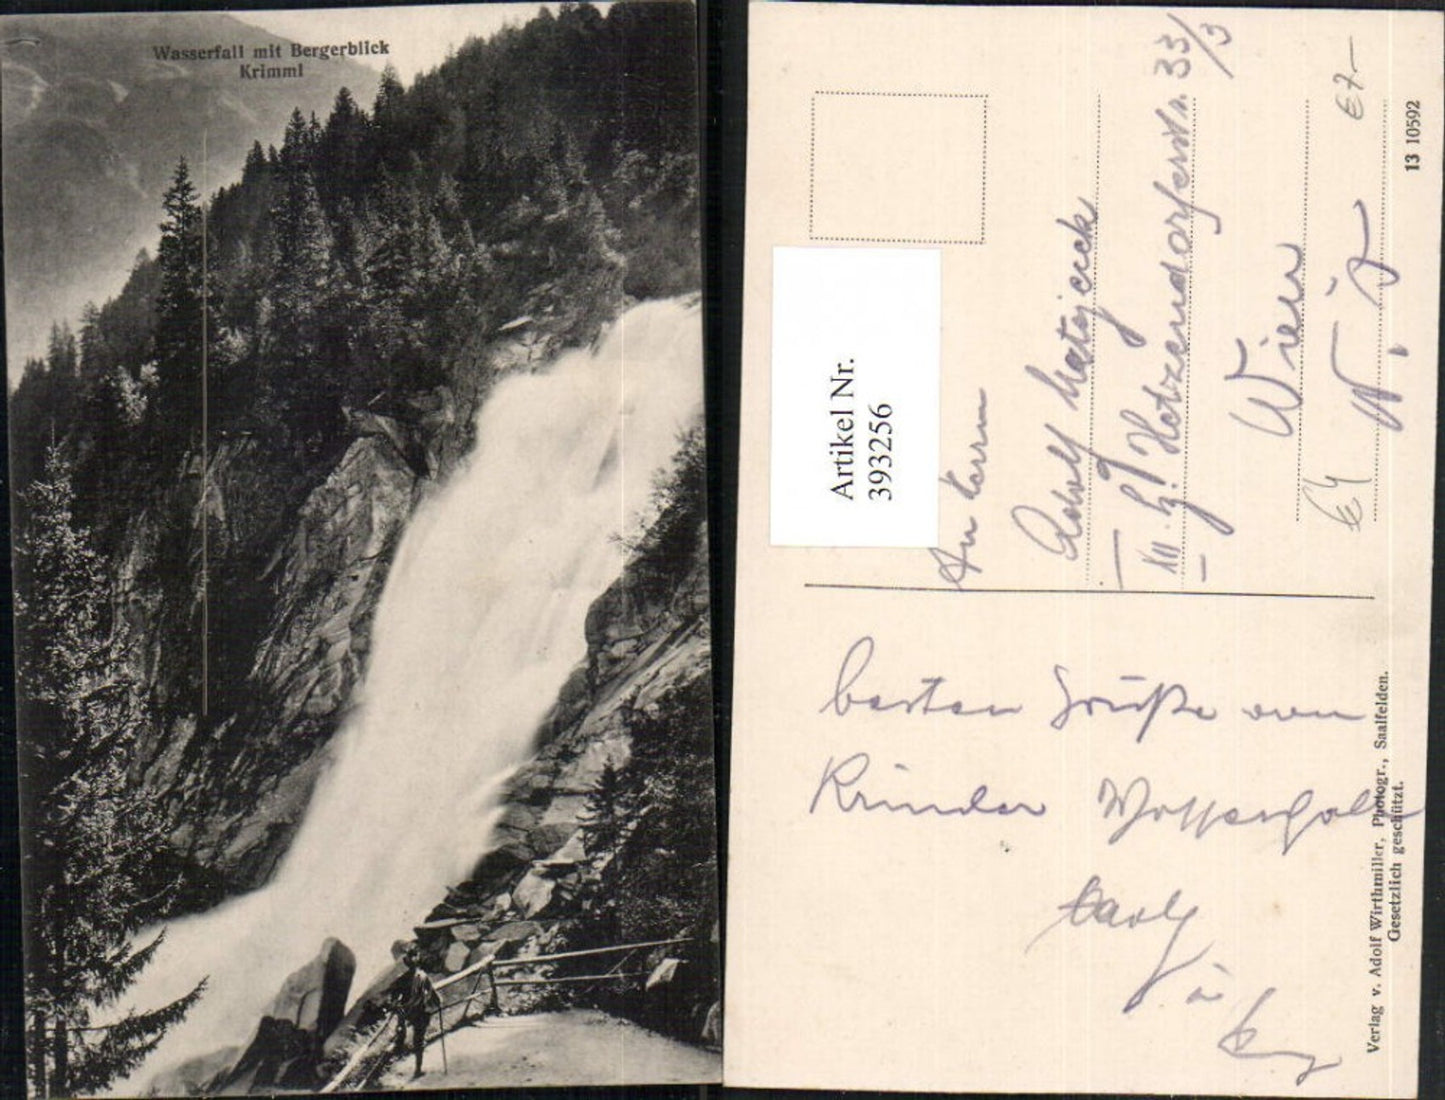 Wasserfall mit Bergerblick
Krimml
Artikel Nr.
393256
An Herrn
Adolf Matejcek
XII. Hetzendorferstr. 33/3
Wien
€4
€7-
13 10592
besten Grüße vom
Wasserfall
Verlag v. Adolf Wirthmiller, Photogr., Saalfelden.
Gesetzlich geschützt.